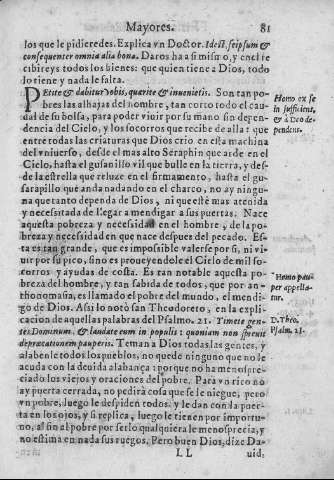 Mayores. 81
los que le pidieredes. Explica vn Doctor. Idest, seipsum &
consequenter omnia alia bona. Daros ha a si mismo, y en el re
cibireys todos los bienes: que quien tiene a Dios, todo
lo tiene y nada le falta.
PEtite & dabitur vobis, quærite & inuenietis. Son tan po-
bres las alhajas del hombre, tan corto todo el cau-
dal de su bolsa, para poder viuir por su mano sin depen-
dencia del Cielo, y los socorros que recibe de alla: que
entre todas las criaturas que Dios crio en esta machina
del vniuerso, desde el mas alto Seraphin que arde en el
Cielo, hasta el gusanillo vil que bulle en la tierra, y des-
de la estrella que reluze en el firmamento, hasta el gu-
sarapillo que anda nadando en el charco, no ay ningu-
na que tanto dependa de Dios, ni que estè mas atenida
y necessitada de llegar a mendigar a sus puertas. Nace
aquesta pobreza y necessidad en el hombre, de la po-
breza y necessidad en que nace despues del pecado. Es-
ta es tan grande, que es impossible valerse por si, ni vi
uir por su pico, sino es proueyendole el Cielo de mil so-
corros y ayudas de costa. Es tan notable aquesta po
breza del hombre, y tan sabida de todos, que por an-
thonomasia, es llamado el pobre del mundo, el mendi-
go de Dios. Assi lo notò san Theodoreto, en la expli-
cacion de aquellas palabras del Psalmo. 21. Timete gen-
tes Dominum, & laudate eum in populis: quoniam non spreuit
deprecationem pauperis. Teman a Dios todas las gentes, y
alabenle todos los pueblos, no quede ninguno que no le
acuda con la deuida alabança: porque no ha menospre-
ciado los viejos y oraciones del pobre. Para vn rico no
ay puerta cerrada, no pedirà cosa que se le niegue, pero
vn pobre, luego le despiden todos, y le dan con la puer-
ta en los ojos, y si replica, luego le tienen por importu-
no, al fin al pobre por serlo qualquiera le menosprecia, y
no estima en nada sus ruegos. Pero buen Dios, dize Da-
LL uid,
Homo ex se
insufficient,
& à Deo de-
pendens.
Homo pau-
per appella-
tur.
D. Theo.
Psalm. 21.